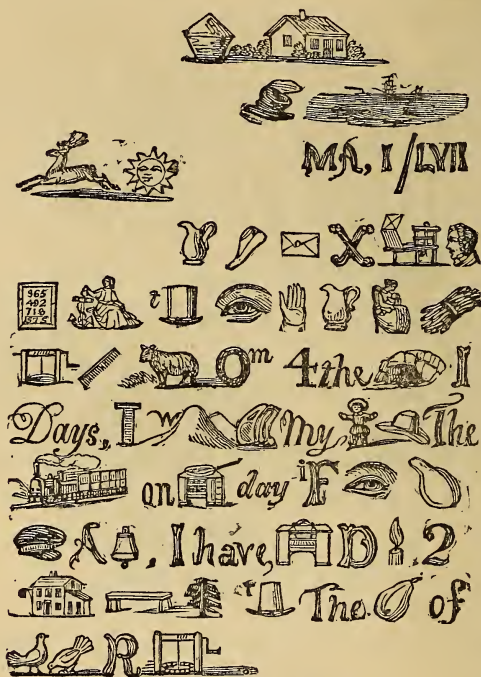 MA, I/LVII
X
965
492
718
t
Om 4the I
Days, I w My The
on day iF
A, I have, D. 2
The of
R